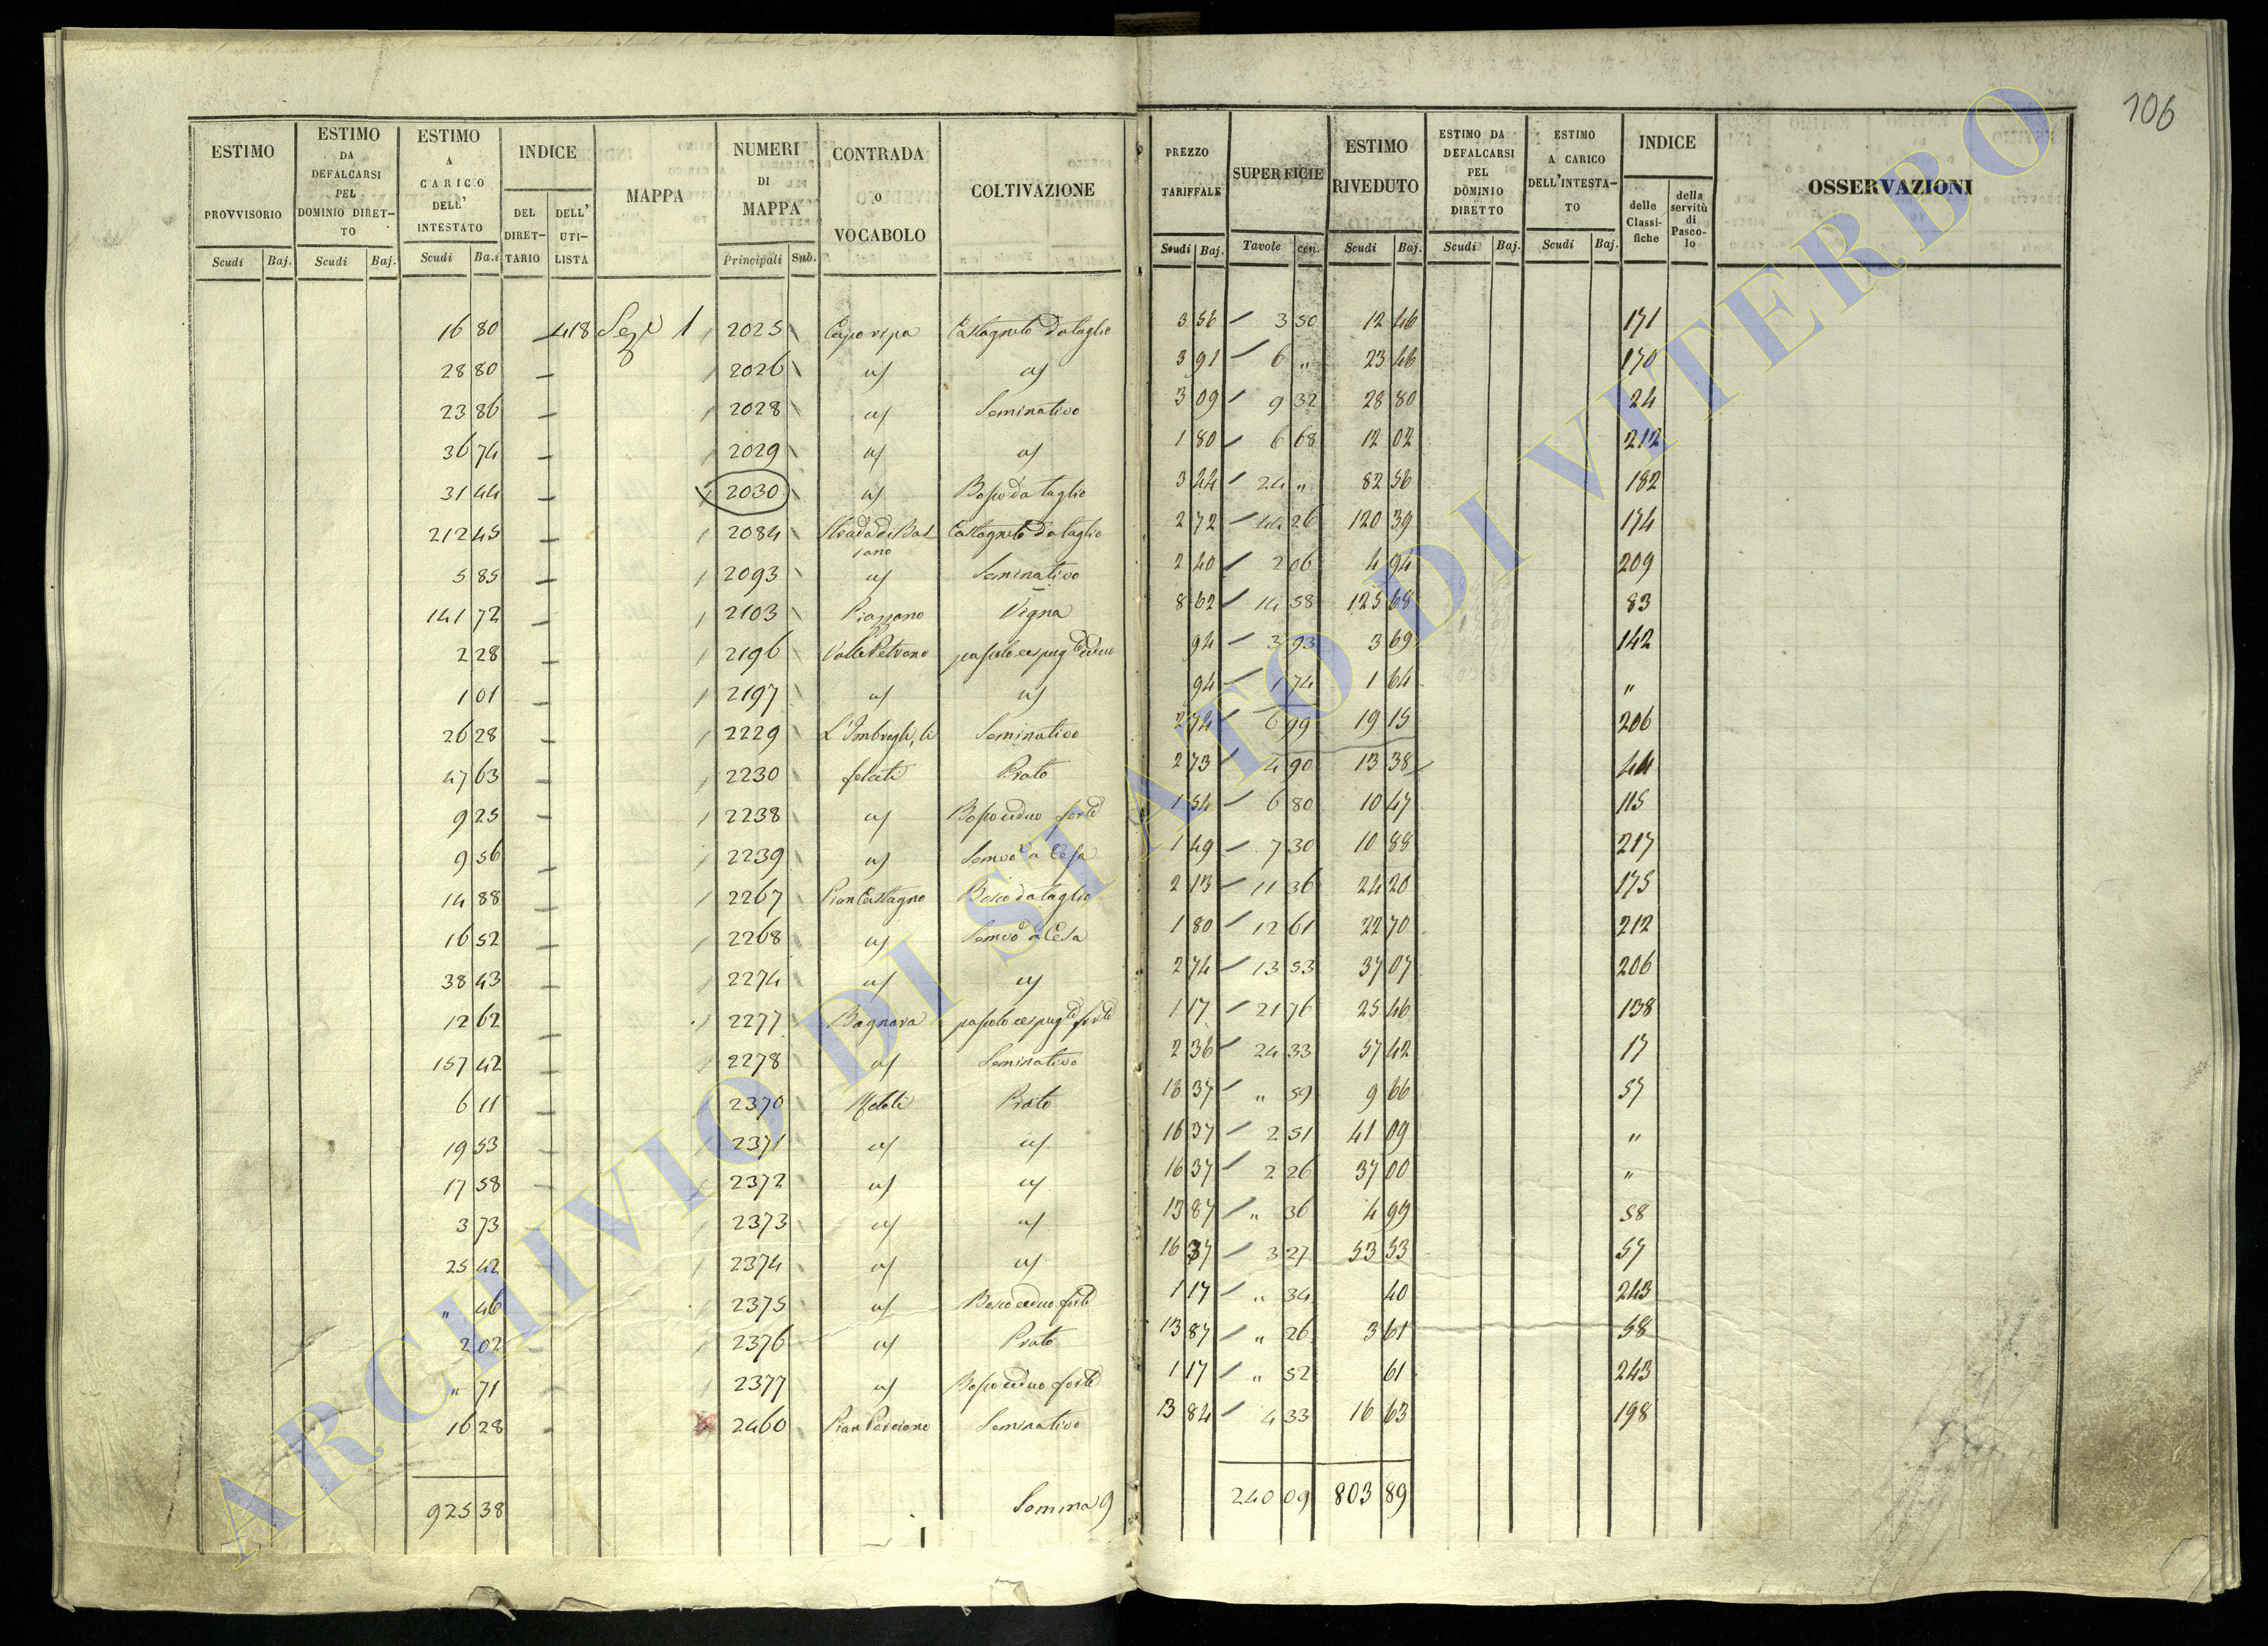 106
ESTIMO PROVVISORIO Scudi Baj.
ESTIMO DA DEFALCARSI PEL DOMINIO DIRETTO Scudi Baj.
ESTIMO A CARICO DELL' INTESTATO Scudi Ba.i
INDICE DEL DIRETTARIO DELL' UTILISTA
MAPPA
NUMERI DI MAPPA Principali Sub.
CONTRADA O VOCABOLO
COLTIVAZIONE
PREZZO TARIFFALE Scudi Baj.
SUPERFICIE Tavole cen.
ESTIMO RIVEDUTO Scudi Baj.
ESTIMO DA DEFALCARSI PEL DOMINIO DIRETTO Scudi Baj.
ESTIMO A CARICO DELL'INTESTATO Scudi Baj.
INDICE delle Classifiche della servitù di Pascolo
OSSERVAZIONI
16 80 418 Sez.e 1 2025 Capo ripa Castagneto da taglio 3 56 3 50 12 46 171
28 80 2026 3 91 6 " 23 46 170
23 86 2028 Seminativo 3 09 9 32 28 80 24
36 74 2029 1 80 6 68 12 02 212
31 44 2030 Bosco da taglio 3 44 24 " 82 56 182
212 45 2084 Strada di Bassano Castagneto da taglio 2 72 44 26 120 39 174
5 85 2093 Seminativo 2 40 2 06 4 94 209
141 72 2103 Piazzano Vigna 8 62 14 58 125 68 83
2 28 2196 Valle Petrono pascolo cespug ceduo 94 3 93 3 69 142
1 01 2197 94 1 74 1 64 "
26 28 2229 Seminativo 2 74 6 99 19 15 206
47 63 2230 Prato 2 73 4 90 13 38 44
9 25 2238 Bosco ceduo forte 1 54 6 80 10 47 115
9 56 2239 Semvo a Cesa 1 49 7 30 10 88 217
14 88 2267 Pian Castagno Bosco da taglio 2 13 11 36 24 20 175
16 52 2268 Semvo a Cesa 1 80 12 61 22 70 212
38 43 2274 2 74 13 53 37 07 206
12 62 2277 Bagnara pascolo cespug forte 1 17 21 76 25 46 138
157 42 2278 Seminativo 2 36 24 33 57 42 17
6 11 2370 Prato 16 37 " 59 9 66 57
19 53 2371 16 37 2 51 41 09 "
17 58 2372 16 37 2 26 37 00 "
3 73 2373 13 87 " 36 4 99 58
25 42 2374 16 37 3 27 53 53 57
" 46 2375 Bosco ceduo forte 1 17 " 34 40 243
2 02 2376 Prato 13 87 " 26 3 61 58
" 71 2377 Bosco ceduo forte 1 17 " 52 61 243
16 28 2460 Seminativo 3 84 4 33 16 63 198
925 38 Somma 240 09 803 89
ARCHIVIO DI STATO DI VITERBO